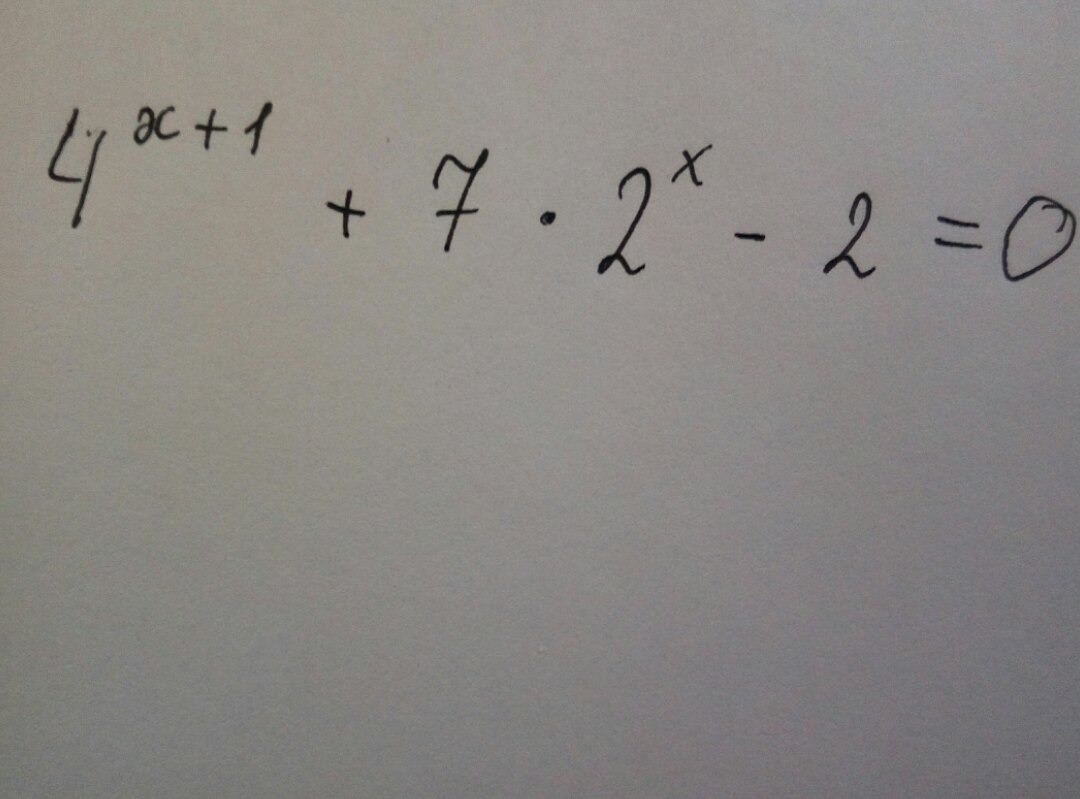 4^{x+1} + 7 · 2^x - 2 = 0